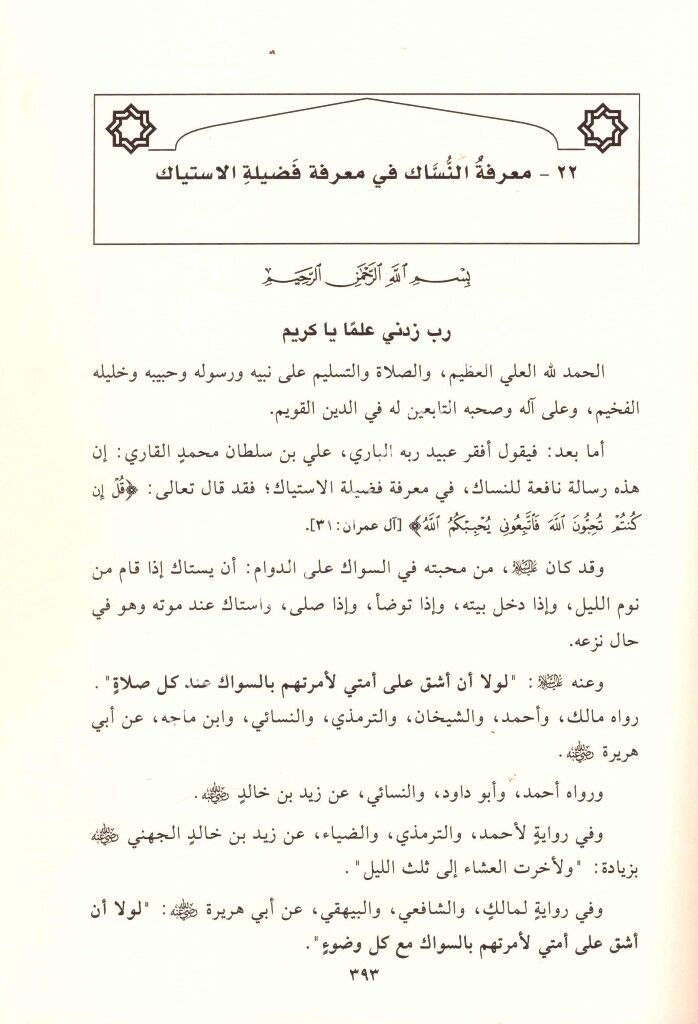 ٢٢ - معرفةُ النُّسَّاك في معرفة فَضيلةِ الاستياك
بِسْمِ اللَّهِ الرَّحْمَٰنِ الرَّحِيمِ
رب زدني علمًا يا كريم
الحمد لله العلي العظيم، والصلاة والتسليم على نبيه ورسوله وحبيبه وخليله
الفخيم، وعلى آله وصحبه التابعين له في الدين القويم.
أما بعد: فيقول أفقر عبيد ربه الباري، علي بن سلطان محمدٍ القاري: إن
هذه رسالة نافعة للنساك، في معرفة فضيلة الاستياك؛ فقد قال تعالى: ﴿قُلْ إِن
كُنتُمْ تُحِبُّونَ اللَّهَ فَاتَّبِعُونِي يُحْبِبْكُمُ اللَّهُ﴾ [آل عمران: ٣١].
وقد كان عليه السلام، من محبته في السواك على الدوام: أن يستاك إذا قام من
نوم الليل، وإذا دخل بيته، وإذا توضأ، وإذا صلى، واستاك عند موته وهو في
حال نزعه.
وعنه عليه السلام: "لولا أن أشق على أمتي لأمرتهم بالسواك عند كل صلاةٍ".
رواه مالك، وأحمد، والشيخان، والترمذي، والنسائي، وابن ماجه، عن أبي
هريرة رضي الله عنه.
ورواه أحمد، وأبو داود، والنسائي، عن زيد بن خالدٍ رضي الله عنه.
وفي روايةٍ لأحمد، والترمذي، والضياء، عن زيد بن خالدٍ الجهني رضي الله عنه
بزيادة: "ولأخرت العشاء إلى ثلث الليل".
وفي روايةٍ لمالكٍ، والشافعي، والبيهقي، عن أبي هريرة رضي الله عنه: "لولا أن
أشق على أمتي لأمرتهم بالسواك مع كل وضوءٍ".
٣٩٣